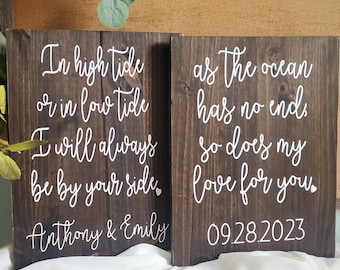 In high tide
or in low tide
I will always
be by your side,
Anthony & Emily
as the ocean
has no end,
so does my
love for you,
09.28.2023